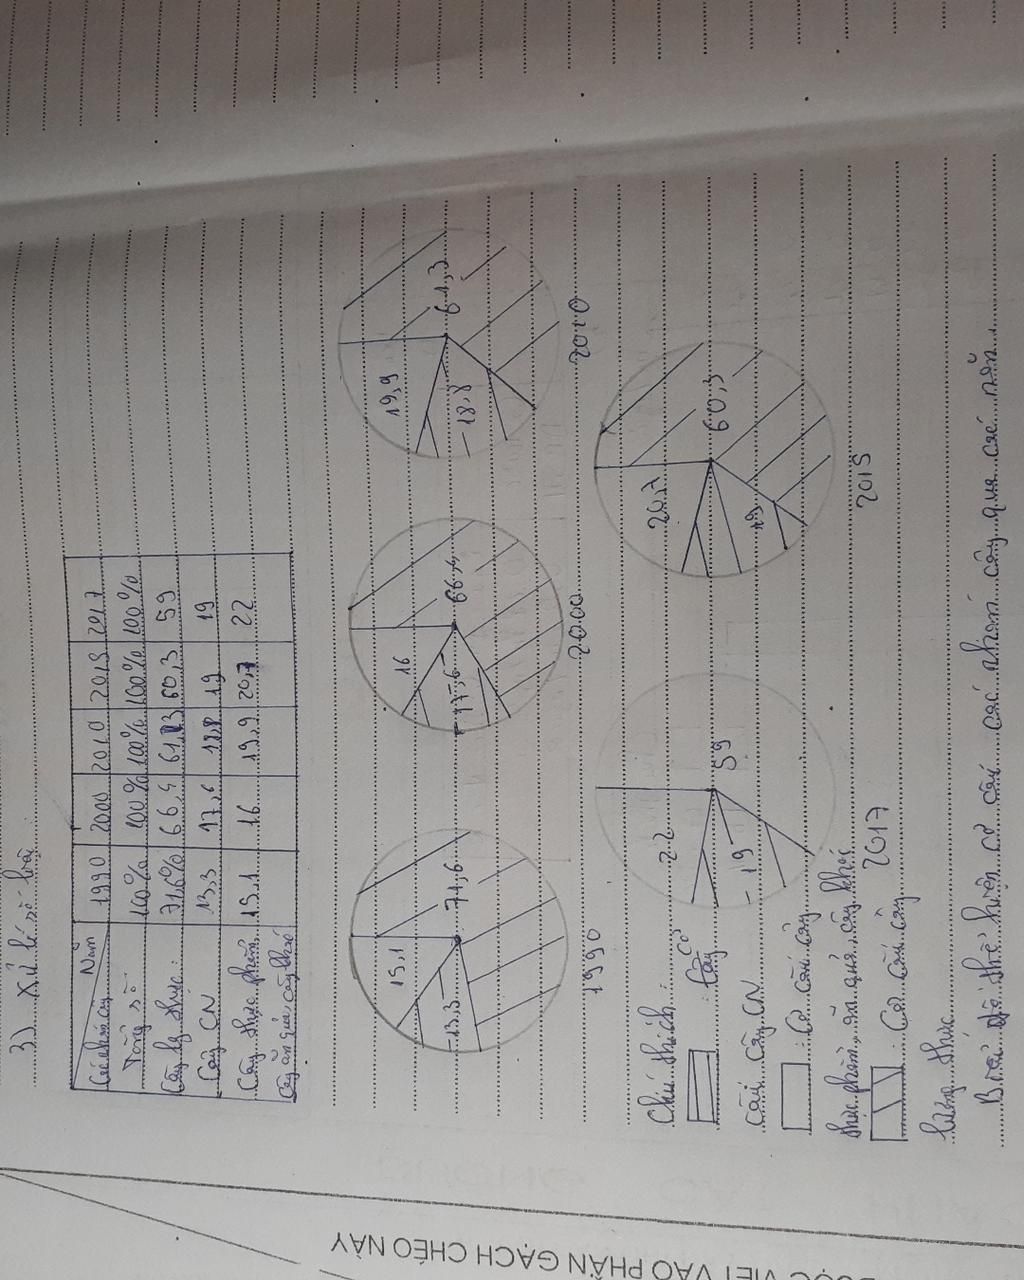 3) Xử lí số liệu
Năm
1990 2000 2010 2015 2017
Tổng số 100% 100% 100% 100% 100%
Cây lg thực: 71,6% 66,4 61,3 60,3 59
Cây CN 13,3 17,6 18,8 19 19
Cây thực phẩm, 15,1 16 19,9 20,7 22
cây ăn quả, cây khác
15,1 71,6 13,3
16 66,4 17,6
19,9 61,3 18,8
1990 2000 2010
22 59 19
20,7 60,3 19
2017 2015
Chú thích: : Cơ
cấu cây CN
: Cơ cấu cây
thực phẩm, ăn quả, cây khác
: Cơ cấu cây
lương thực
Biểu đồ thể hiện cơ cấu các nhóm cây qua các năm
ĐƯỢC VIẾT VÀO PHẦN GẠCH CHÉO NÀY